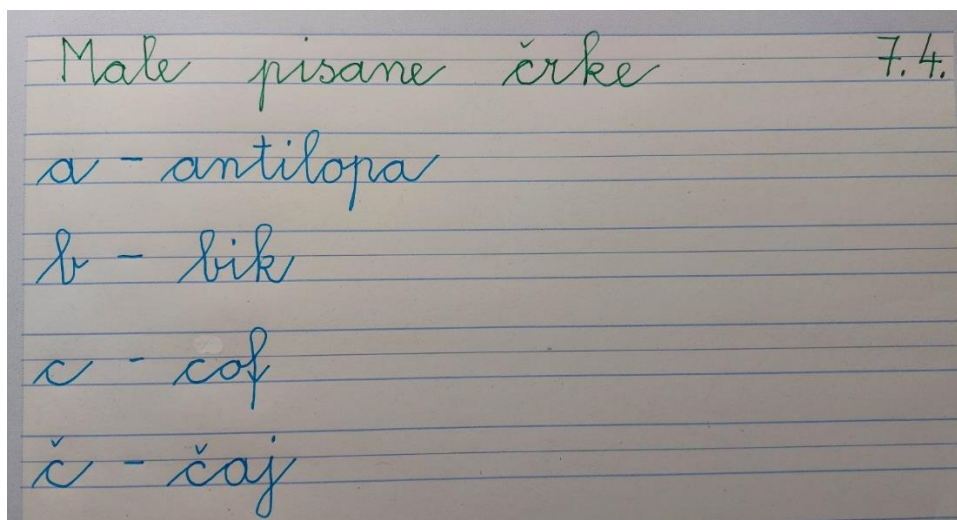 Male pisane črke 7.4.
a - antilopa
b - bik
c - cof
č - čaj